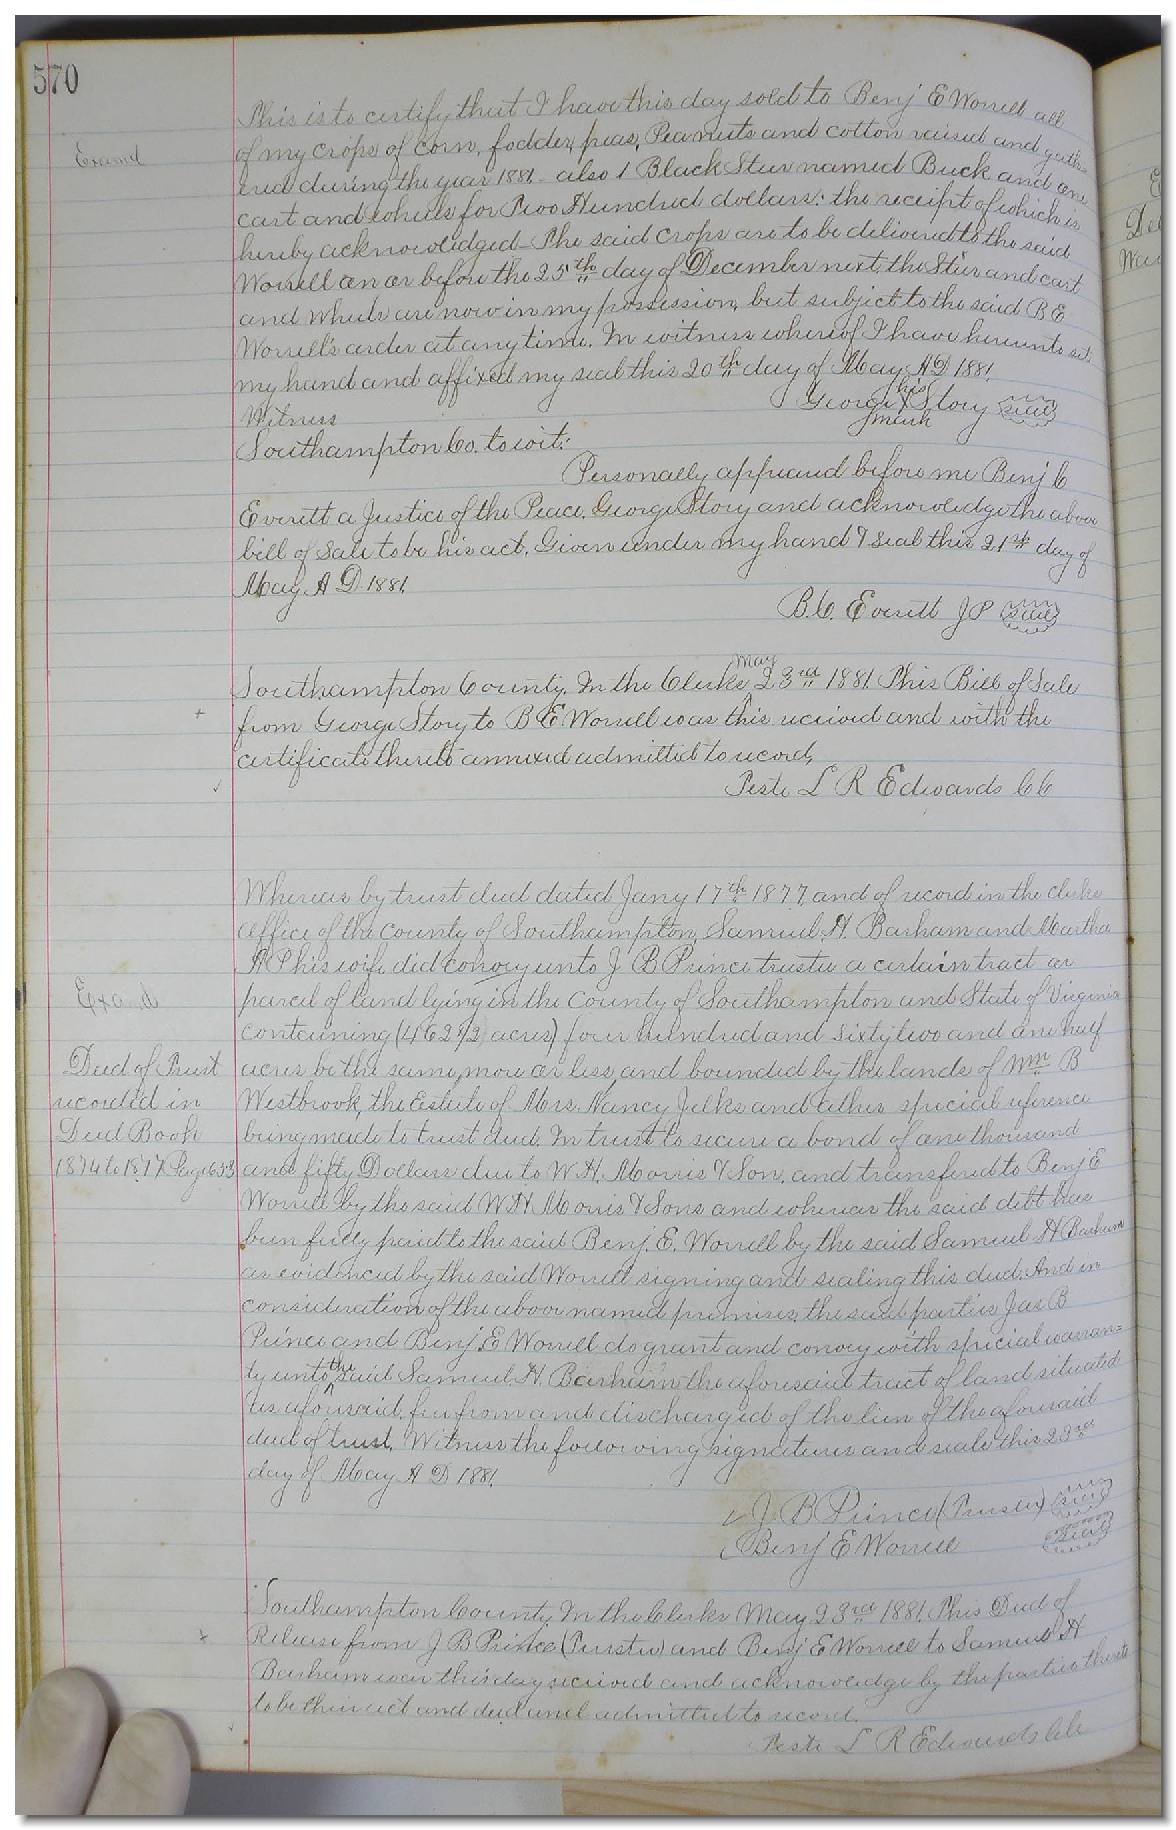 570
This is to certify that I have this day sold to Benj E Worrell all
Examd
of my crops of corn, fodder, peas, Peanuts and cotton raised and gath-
ered during the year 1881 - also 1 Black Steer named Buck and one
cart and wheels for Two Hundred dollars: the receipt of which is
hereby acknowledged - The said crops are to be delivered to the said
Worrell on or before the 25th day of December next, the Steer and cart
and wheels are now in my possession, but subject to the said B E
Worrell's order at any time. In witness whereof I have hereunto set
my hand and affixed my seal this 20th day of May A D 1881.
his
George X Story seal
mark
Witness
Southampton Co. to wit:
Personally appeared before me Benj C
Everett a Justice of the Peace. George Story and acknowledge the above
bill of Sale to be his act. Given under my hand & Seal this 21st day of
May A D 1881.
B. C. Everett J P seal
Southampton County. In the Clerks May 23rd 1881. This Bill of Sale
from George Story to B E Worrell was this received and with the
certificate thereto annexed admitted to record,
Teste L R Edwards CC
Whereas by trust deed dated Jany 17th 1877, and of record in the clerks
office of the county of Southampton, Samuel H. Barham and Martha
A P his wife did convey unto J B Prince trustee a certain tract or
Examd
parcel of land lying in the County of Southampton and State of Virginia
containing (462 1/2 acres) four hundred and sixty two and one half
Deed of Trust
recorded in
Deed Book
1874 to 1877. Page 633
acres be the same, more or less, and bounded by the lands of Wm B
Westbrook, the Estate of Mrs. Nancy Jelks and other special reference
being made to trust deed. In trust to secure a bond of one thousand
and fifty Dollars due to W. H. Morris & Son, and transfered to Benj E
Worrell by the said W H. Morris & Sons and whereas the said debt has
been fully paid to the said Benj. E. Worrell by the said Samuel H Barham
as evidenced by the said Worrell signing and sealing this deed. And in
consideration of the above named premises, the said parties Jas B
Prince and Benj. E Worrell do grant and convey with special warran=
ty unto the said Samuel H. Barham the aforesaid tract of land situated
as aforesaid, free from and discharged of the lien of the aforesaid
deed of trust. Witness the following signatures and seals this 23rd
day of May A D 1881.
J B Prince (Trustee) seal
Benj E Worrell seal
Southampton County. In the Clerks May 23rd 1881. This Deed of
Release from J B Prince (Trustee) and Benj E Worrell to Samuel H
Barham was this day received and acknowledge by the parties thereto
to be their act and deed and admitted to record.
Teste L R Edwards CC